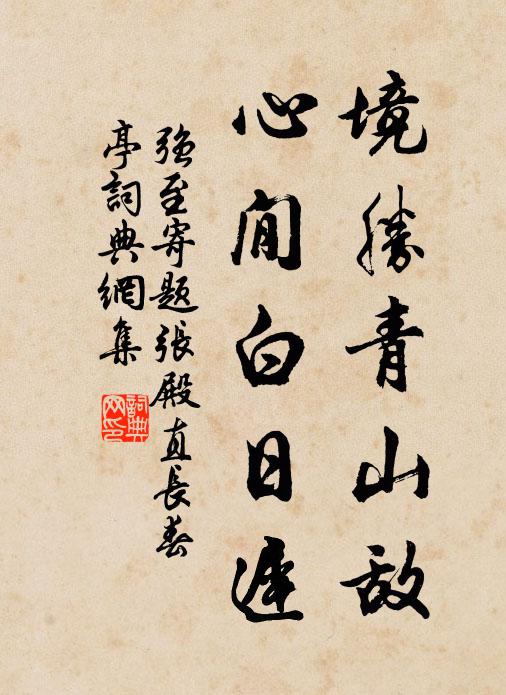 境勝青山敌
心閒白日遲
强至寄题張殿直長春
亭詞典網集
詞典网印